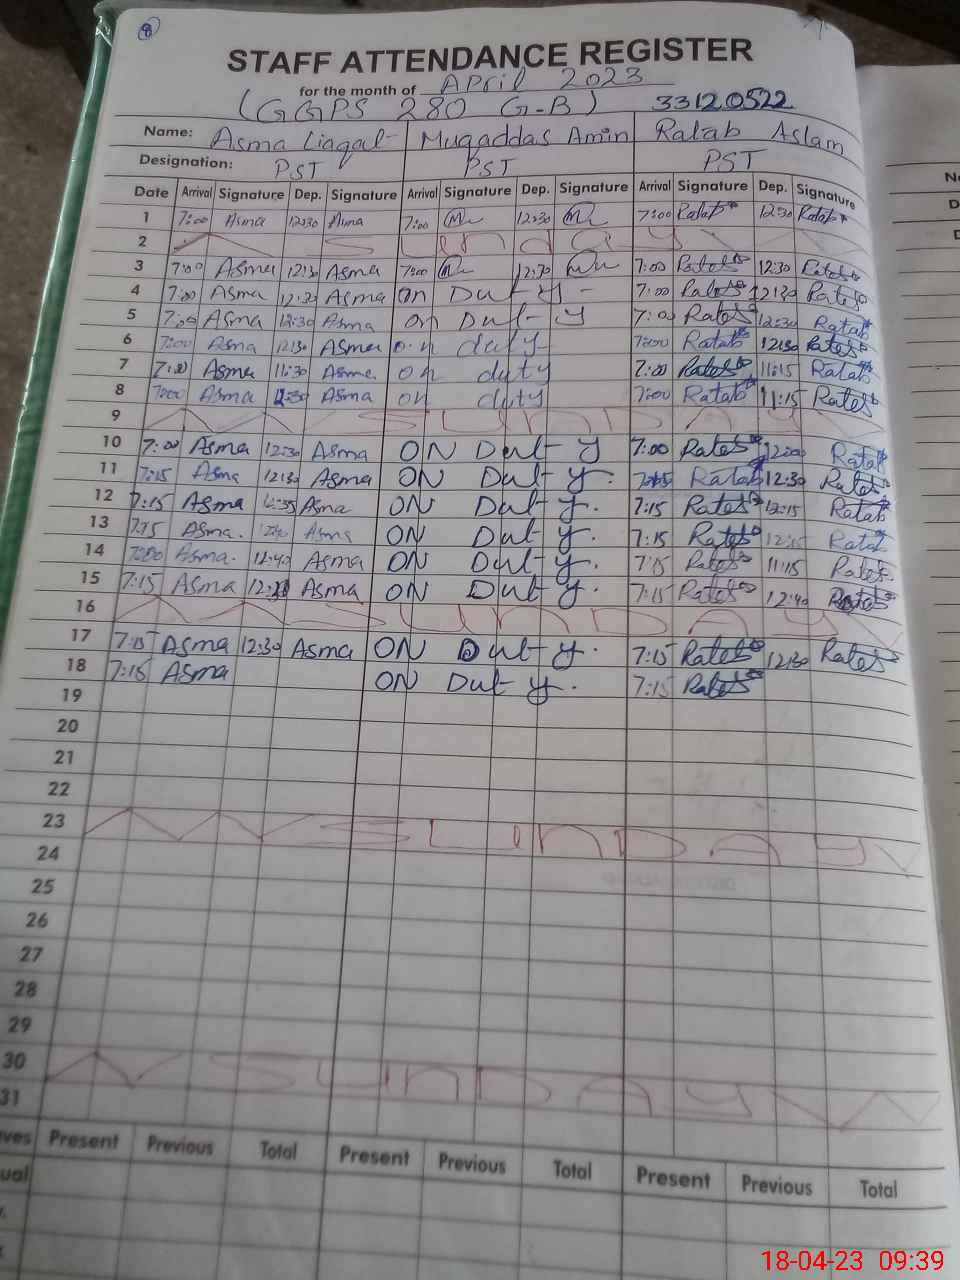 8
STAFF ATTENDANCE REGISTER
for the month of April 2023
(GGPS 280 G-B) 33120522
Name: Asma Liaqat Muqaddas Amin Ratab Aslam
Designation: PST PST PST
Date Arrival Signature Dep. Signature Arrival Signature Dep. Signature Arrival Signature Dep. Signature
1 7:00 Asma 12:30 Asma 7:00 12:30 7:00 Ratab 12:30 Ratab
2 Sunday
3 7:00 Asma 12:30 Asma 7:00 12:30 7:00 Ratab 12:30 Ratab
4 7:00 Asma 12:30 Asma on Duty - 7:00 Ratab 12:30 Ratab
5 7:00 Asma 12:30 Asma on Duty 7:00 Ratab 12:30 Ratab
6 7:00 Asma 12:30 Asma on duty 7:00 Ratab 12:30 Ratab
7 7:00 Asma 11:30 Asma on duty 7:00 Ratab 11:15 Ratab
8 7:00 Asma Asma on duty 7:00 Ratab 11:15 Ratab
9 SUNDAY
10 7:00 Asma 12:30 Asma ON Duty 7:00 Ratab 12:00 Ratab
11 7:15 Asma 12:30 Asma ON Duty. Ratab 12:30 Ratab
12 7:15 Asma 12:35 Asma ON Duty. 7:15 Ratab 12:15 Ratab
13 7:15 Asma. Asma ON Duty. 7:15 Ratab 12:15 Ratab
14 Asma. 12:40 Asma ON Duty. 7:15 Ratab 11:15 Ratab
15 7:15 Asma Asma ON Duty. 7:15 Ratab 12:40 Ratab
16 SUNDAY
17 7:15 Asma 12:30 Asma ON Duty. 7:15 Ratab 12:30 Ratab
18 7:15 Asma ON Duty. 7:15 Ratab
19
20
21
22
23 SUNDAY
24
25
26
27
28
29
30 SUNDAY
31
ves Present Previous Total Present Previous Total Present Previous Total
ual
18-04-23 09:39